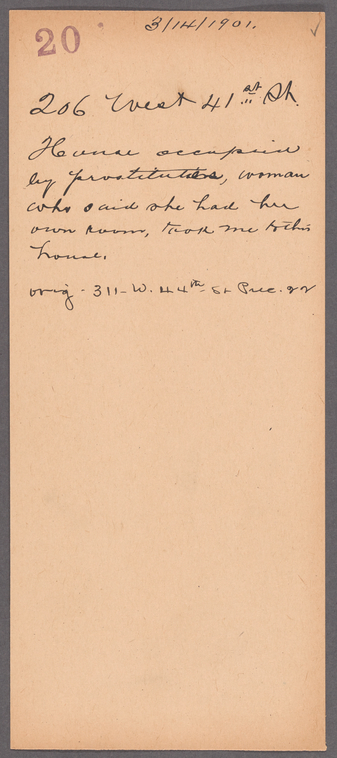 3/14/1901.
20
206 West 41st St.
House occupied
by prostitutes, woman
who said she had her
own room, took me to this
house.
orig - 311 - W. 44th St Prec. 22